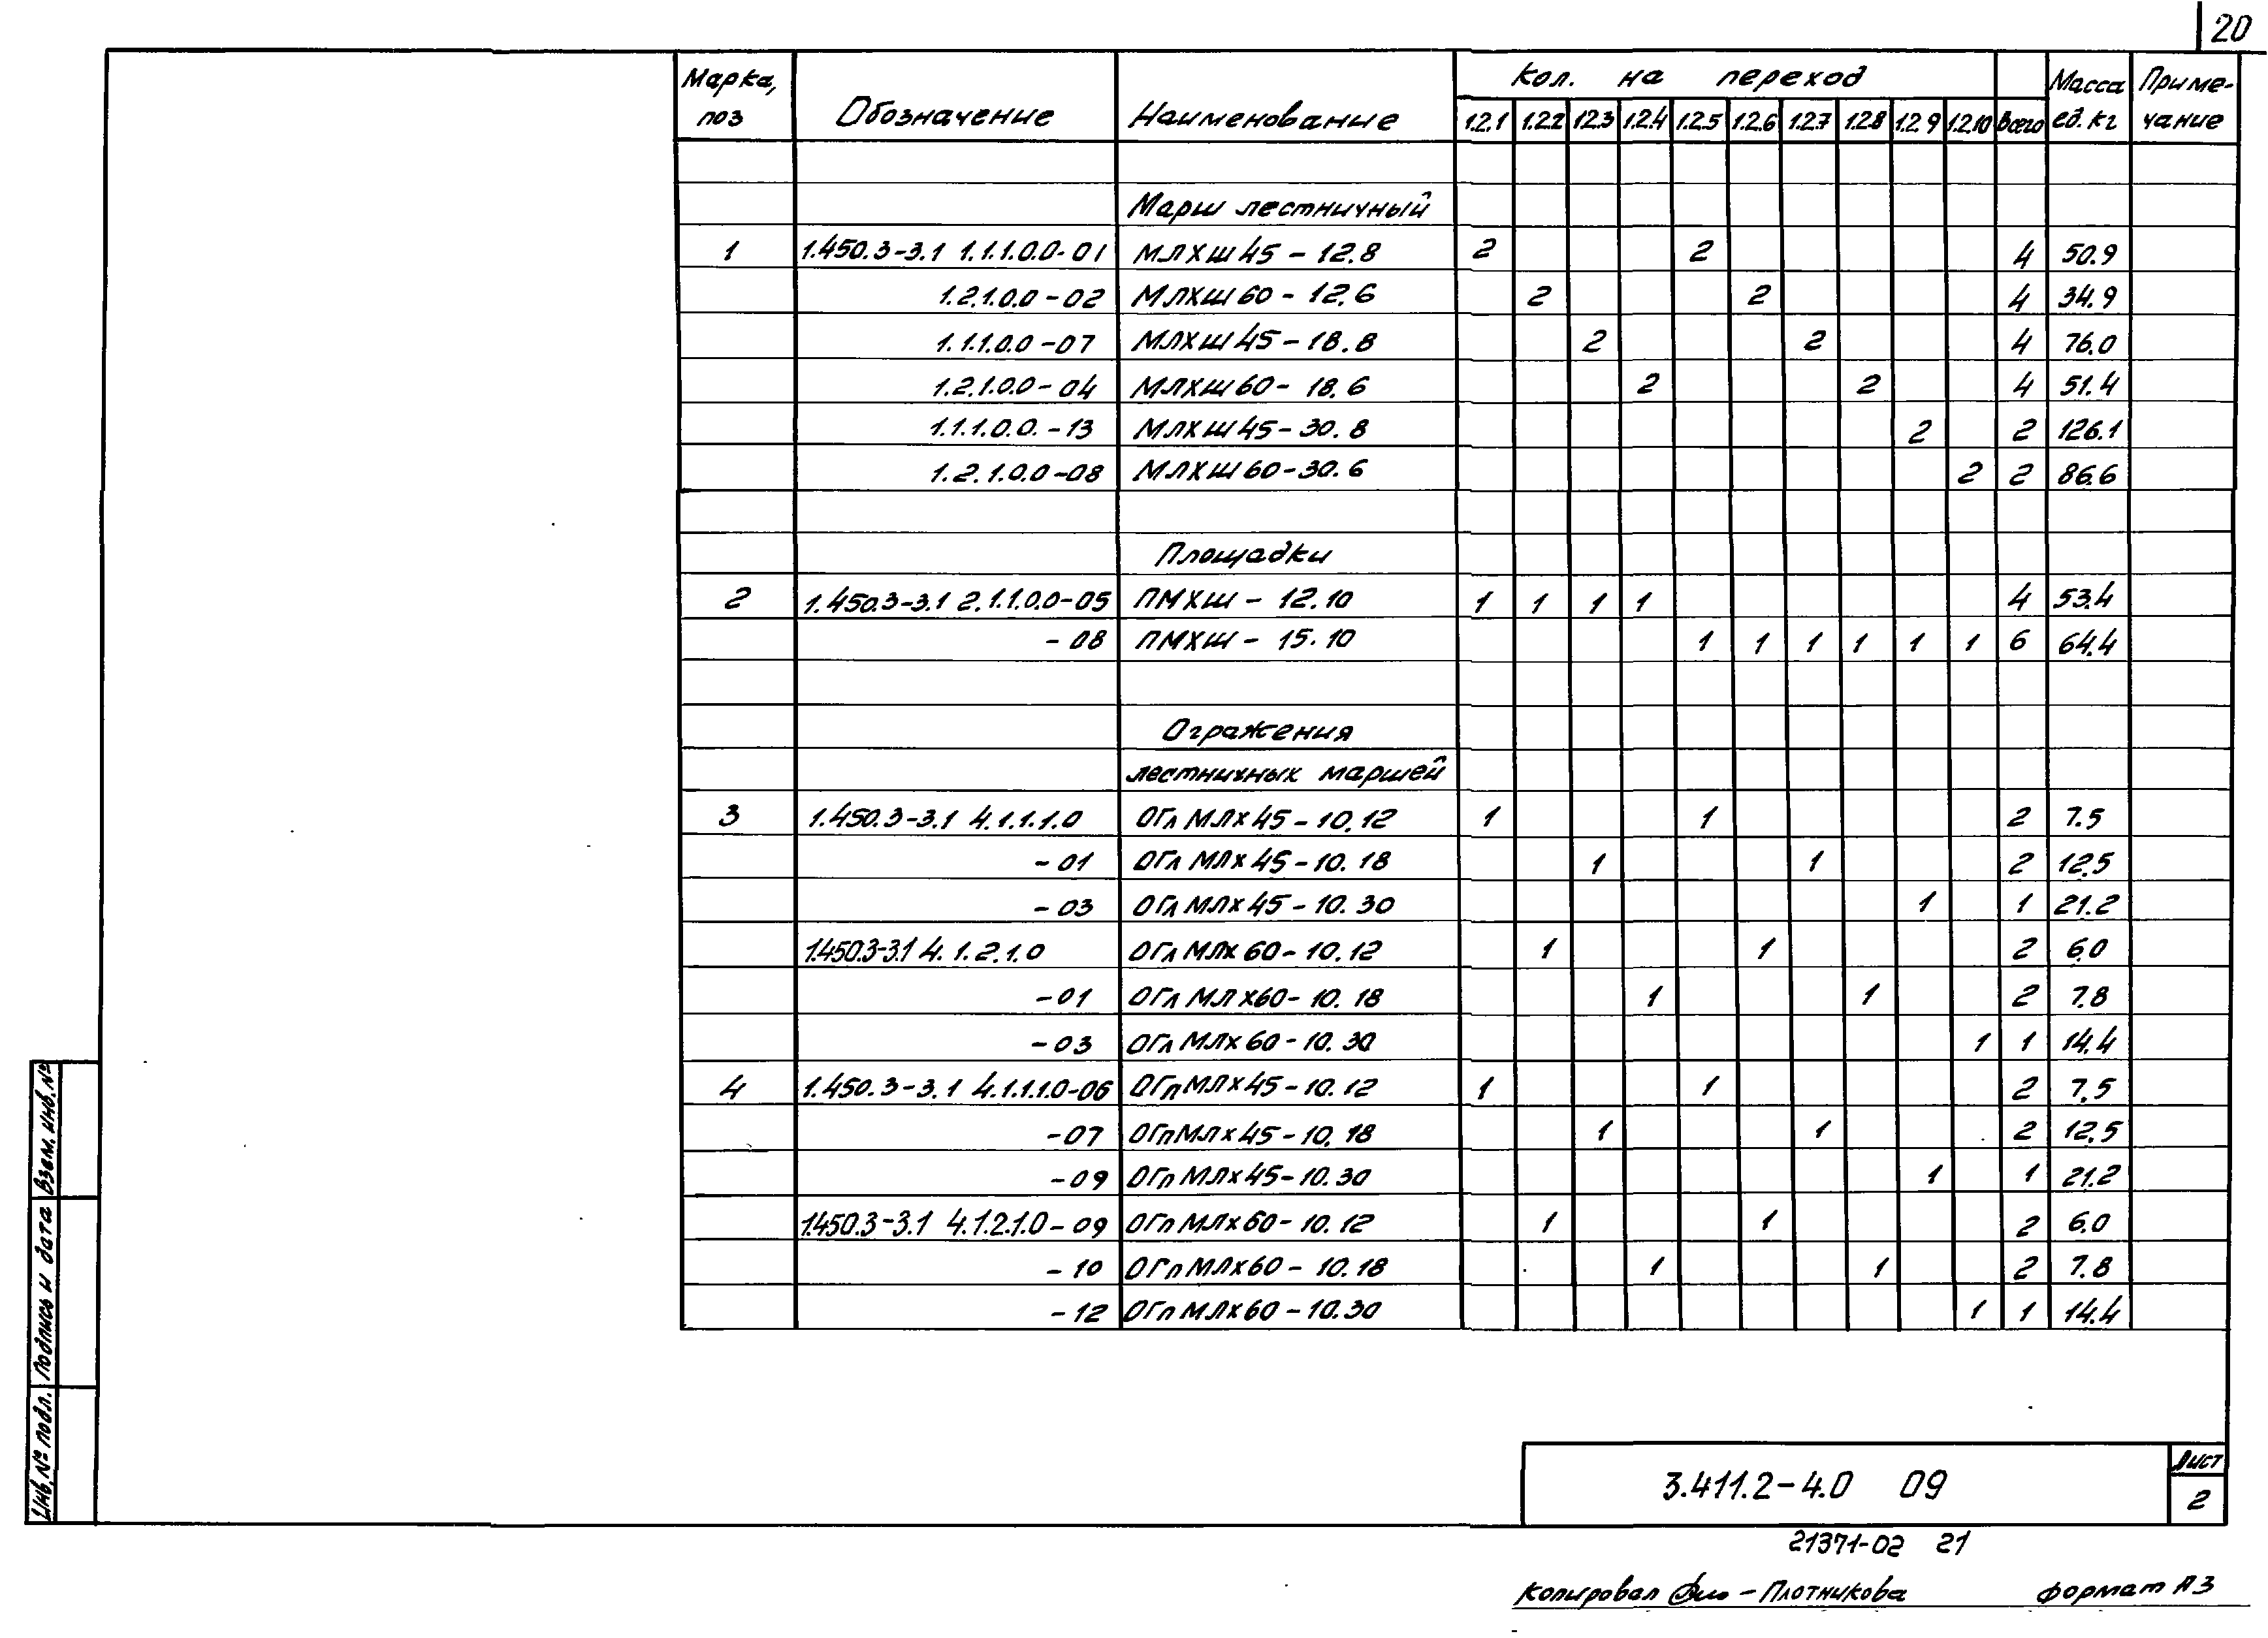 20
Марка, поз | Обозначение | Наименование | Кол. на переход | Всего | Масса ед. кг | Приме-чание
1.2.1 | 1.2.2 | 1.2.3 | 1.2.4 | 1.2.5 | 1.2.6 | 1.2.7 | 1.2.8 | 1.2.9 | 1.2.10
Марш лестничный
1 | 1.450.3-3.1 1.1.1.0.0-01 | МЛХШ45-12.8 | 2 | 2 | 4 | 50.9
1.2.1.0.0-02 | МЛХШ60-12.6 | 2 | 2 | 4 | 34.9
1.1.1.0.0-07 | МЛХШ45-18.8 | 2 | 2 | 4 | 76.0
1.2.1.0.0-04 | МЛХШ60-18.6 | 2 | 2 | 4 | 51.4
1.1.1.0.0.-13 | МЛХШ45-30.8 | 2 | 2 | 126.1
1.2.1.0.0-08 | МЛХШ60-30.6 | 2 | 2 | 86.6
Площадки
2 | 1.450.3-3.1 2.1.1.0.0-05 | ПМХШ-12.10 | 1 | 1 | 1 | 1 | 4 | 53.4
-08 | ПМХШ-15.10 | 1 | 1 | 1 | 1 | 1 | 1 | 6 | 64.4
Ограждения
лестничных маршей
3 | 1.450.3-3.1 4.1.1.1.0 | ОГлМЛх45-10.12 | 1 | 1 | 2 | 7.5
-01 | ОГлМЛх45-10.18 | 1 | 1 | 2 | 12.5
-03 | ОГлМЛх45-10.30 | 1 | 1 | 21.2
1.450.3-3.1 4.1.2.1.0 | ОГлМЛх60-10.12 | 1 | 1 | 2 | 6.0
-01 | ОГлМЛх60-10.18 | 1 | 1 | 2 | 7.8
-03 | ОГлМЛх60-10.30 | 1 | 1 | 14.4
4 | 1.450.3-3.1 4.1.1.1.0-06 | ОГпМЛх45-10.12 | 1 | 1 | 2 | 7.5
-07 | ОГпМЛх45-10.18 | 1 | 1 | 2 | 12.5
-09 | ОГпМЛх45-10.30 | 1 | 1 | 21.2
1.450.3-3.1 4.1.2.1.0-09 | ОГпМЛх60-10.12 | 1 | 1 | 2 | 6.0
-10 | ОГпМЛх60-10.18 | 1 | 1 | 2 | 7.8
-12 | ОГпМЛх60-10.30 | 1 | 1 | 14.4
Инв.№ подл. | Подпись и дата | Взам. инв.№
3.411.2-4.0 09
Лист
2
21371-02 21
Копировал - Плотникова формат А3